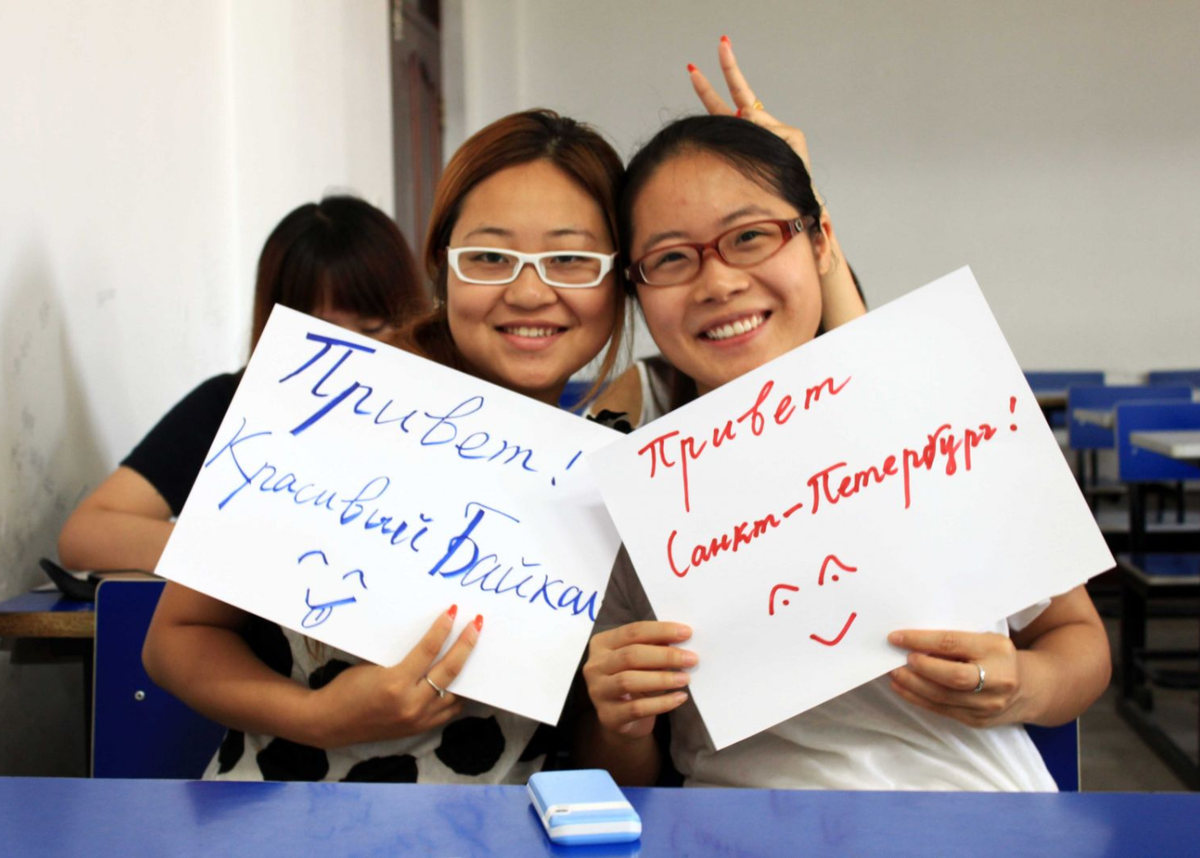 Привет!
Красивый Байкал
Привет
Санкт-Петербург!